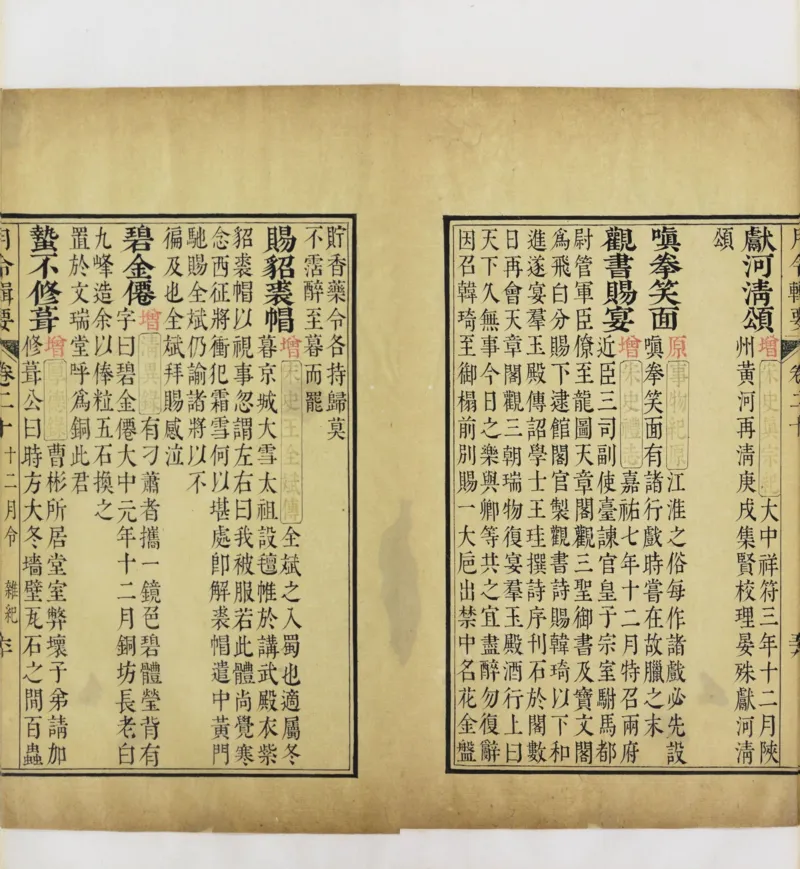 獻河清頌增宋史真宗紀大中祥符三年十二月陝
州黃河再清庚戌集賢校理晏殊獻河清
頌
嗔拳笑面原事物紀原江淮之俗每作諸戲必先設
嗔拳笑面有諸行戲時嘗在故臘之末
觀書賜宴增宋史禮志嘉祐七年十二月特召兩府
近臣三司副使臺諫官皇子宗室駙馬都
尉管軍臣僚至龍圖天章閣觀三聖御書及寶文閣
爲飛白分賜下逮館閣官製觀書詩賜韓琦以下和
進遂宴羣玉殿傳詔學士王珪撰詩序刊石於閣數
日再會天章閣觀三朝瑞物復宴羣玉殿酒行上曰
天下久無事今日之樂與卿等共之宜盡醉勿復辭
因召韓琦至御榻前別賜一大巵出禁中名花金盤
貯香藥令各持歸莫
不霑醉至暮而罷
賜貂裘帽增宋史王全斌傳全斌之入蜀也適屬冬
暮京城大雪太祖設氊帷於講武殿衣紫
貂裘帽以視事忽謂左右曰我被服若此體尚覺寒
念西征將衝犯霜雪何以堪處卽解裘帽遣中黃門
馳賜全斌仍諭諸將以不
徧及也全斌拜賜感泣
碧金僊增清異錄有刁蕭者攜一鏡色碧體瑩背有
字曰碧金僊大中元年十二月銅坊長老白
九峰造余以俸粒五石換之
置於文瑞堂呼爲銅此君
蟄不修葺增曹彬所居堂室弊壞子弟請加
修葺公曰時方大冬墻壁瓦石之間百蟲
月令輯要 卷二十 十二月令 雜紀